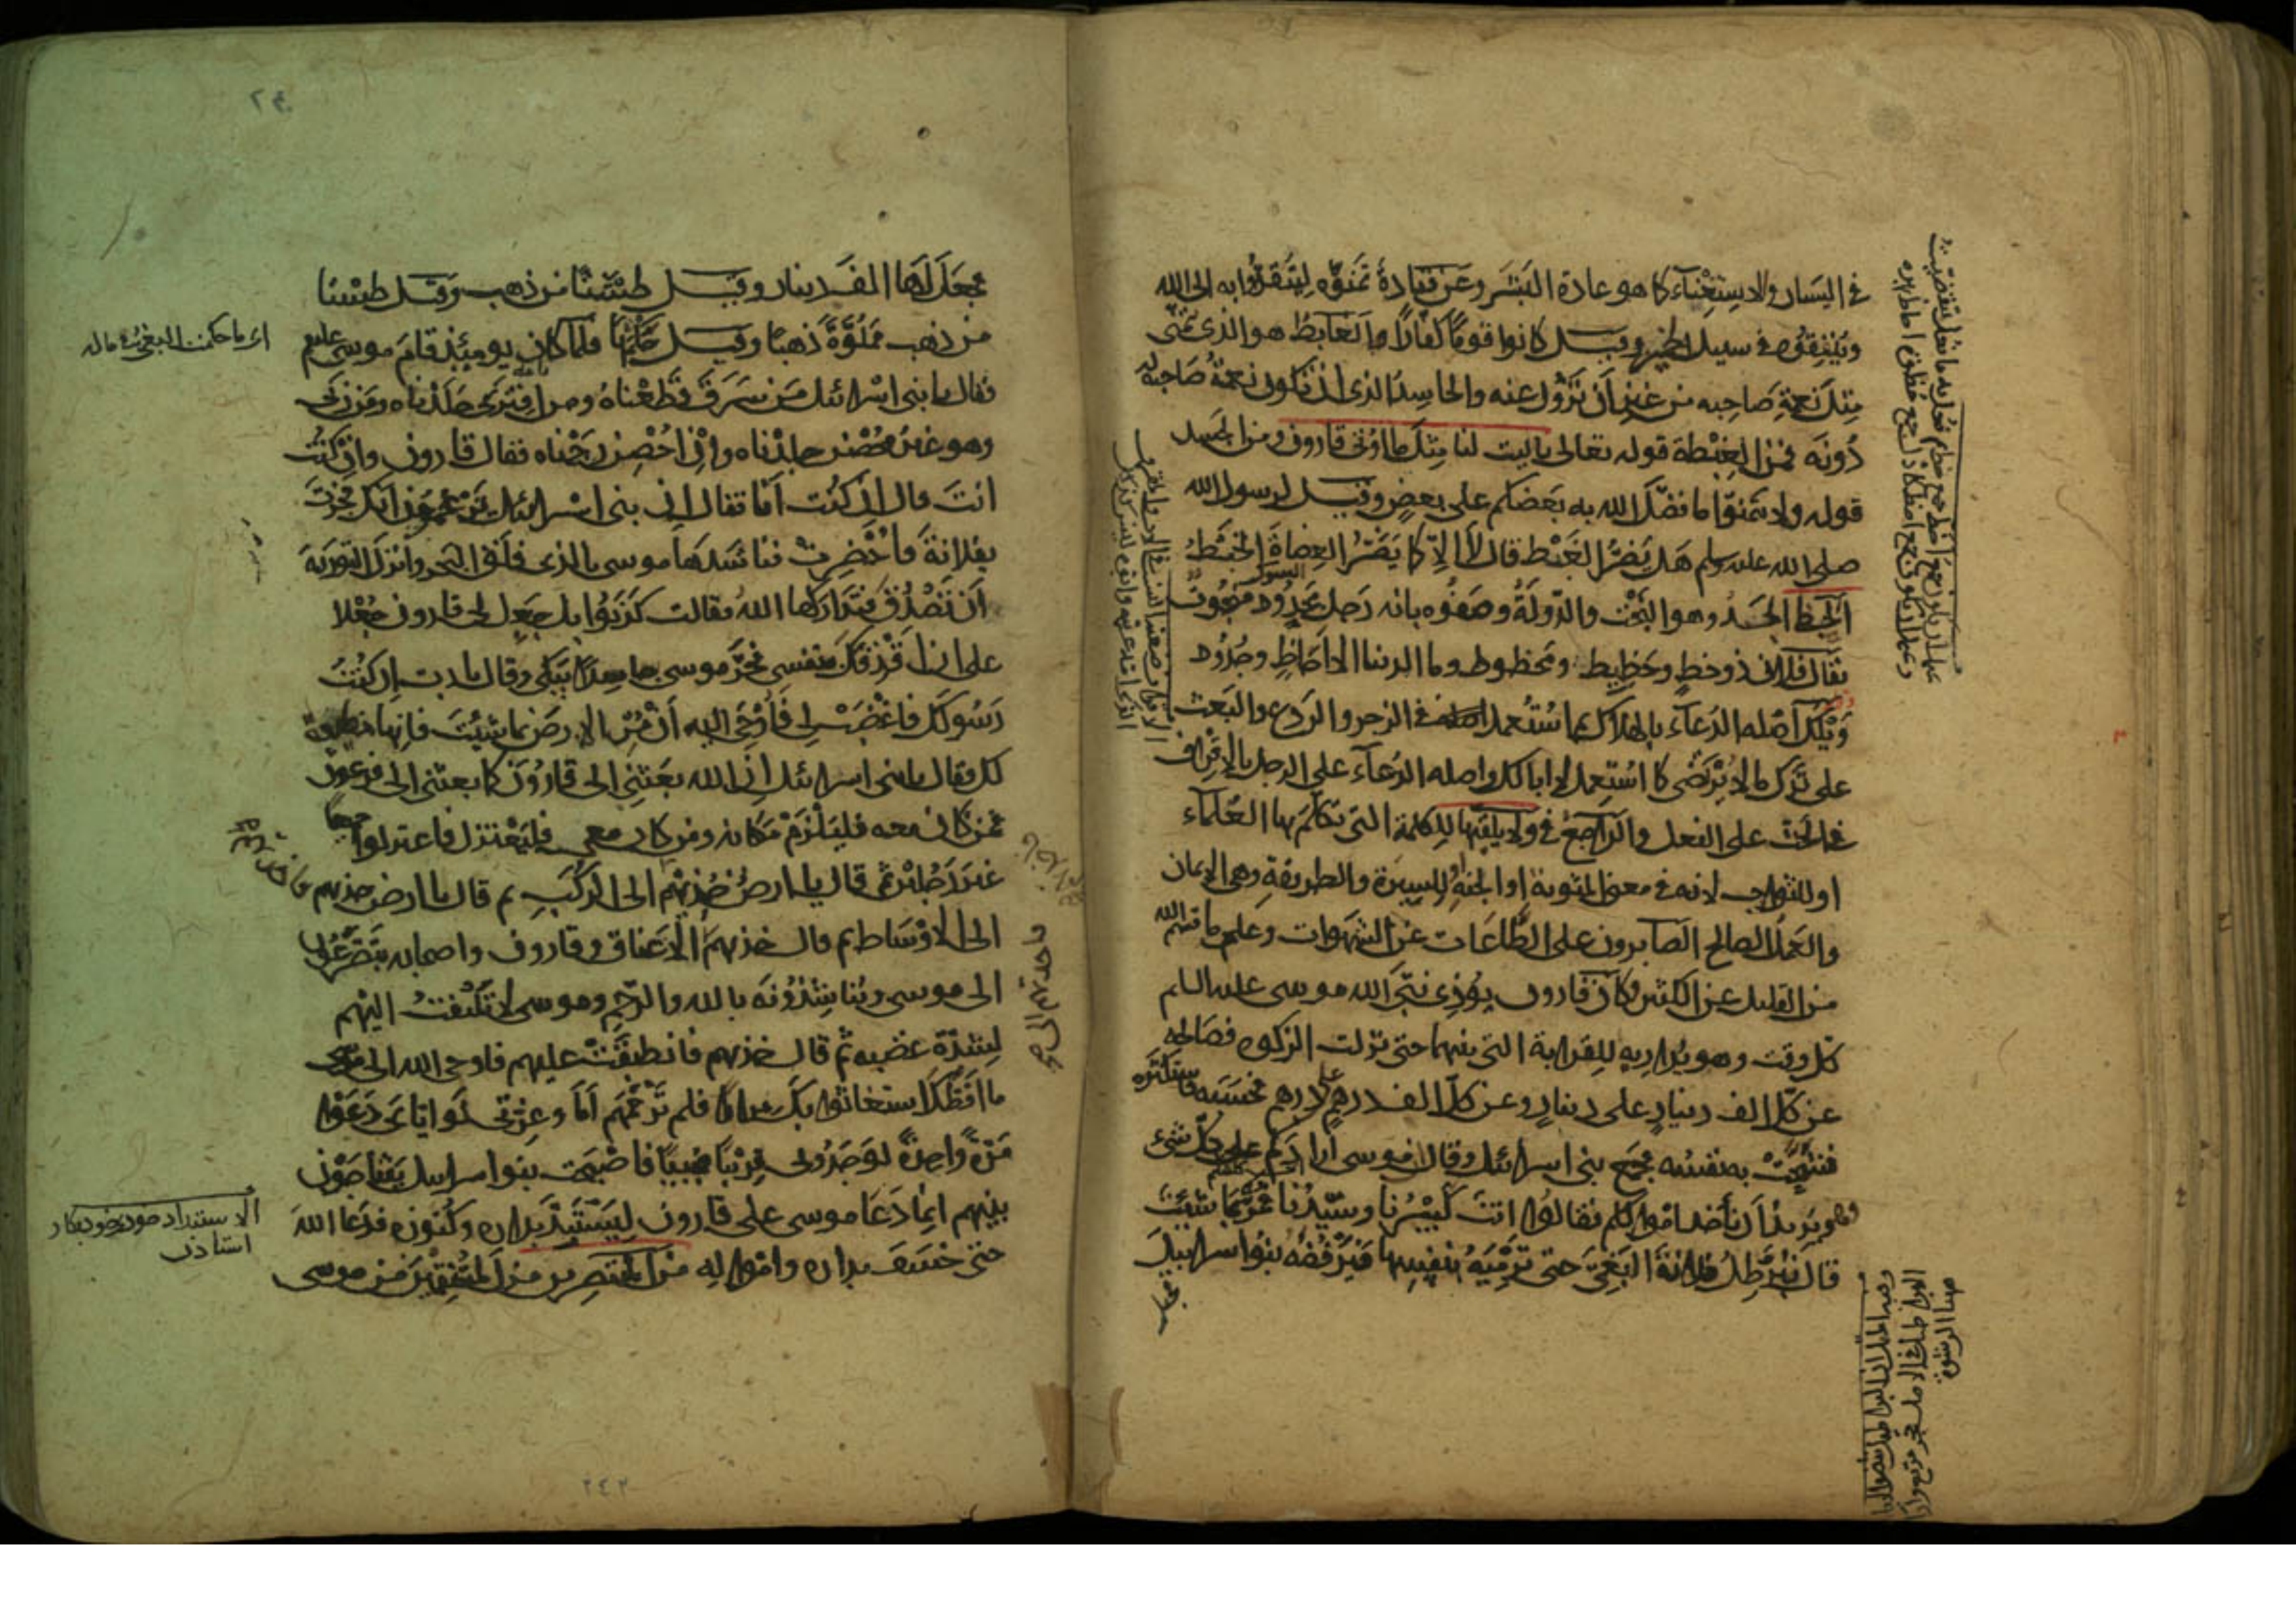 في اليسار والاستغناء كما هو عادة البشر وعن قتادة تمنّوه ليتقرّبوا به الى الله
وينفقوه في سبيل الخير وقيل كانوا قومًا كفّارًا والغابط هو الذي يتمنّى
مثل نعمة صاحبه من غير ان تزول عنه والحاسد الذي ان تكون نعمة صاحبه له
دونه فمن الغبطة قوله تعالى ياليت لنا مثل ما اوتي قارون ومن الحسد
قوله ولا تتمنّوا ما فضّل الله به بعضكم على بعض وقيل لرسول الله
صلى الله عليه وسلم هل يضرّ الغبط قال لا الا كما يضرّ العضاة الخبط
الحظ الجد وهو البخت والدولة وصفوه بانه رجل مجدود مبخوت
يقال فلان ذو حظ وحظيظ ومحظوظ وما الدنيا الا احاظ وجدود
ويلك اصله الدعاء بالهلاك ثم استعمل في الزجر والردع والبعث
على ترك ما لا يرتضى كما استعمل لا ابا لك واصله الدعاء على الرجل بالاقراف
في الحث على الفعل والراجع في ولا يلقّاها للكلمة التي تكلم بها العلماء
او للثواب لانه في معنى المثوبة او الجنة او للسيرة والطريقة وهي الايمان
والعمل الصالح الصابرون على الطاعات عن الشهوات وعلى ما قسم الله
من القليل عن الكثير كان قارون يؤذي نبي الله موسى عليه السلام
كل وقت وهو يداريه للقرابة التي بينهما حتى نزلت الزكوة فصالحه
عن كل الف دينار على دينار وعن كل الف درهم على درهم فحسبه فاستكثره
فشحّت به نفسه فجمع بني اسرائل وقال ان موسى ارادكم على كل شيء
وهو يريد ان يأخذ اموالكم فقالوا انت كبيرنا وسيّدنا فمر بما شئت
قال نبرطل فلانة البغيّ حتى ترميه بنفسها فيرفضه بنوا سراييل
فجعل
فجعل لها الف دينار وقيل طستا من ذهب وقيل طستا
من ذهب مملوّة ذهبا وقيل حكّمها فلما كان يوم عيد قام موسى
فقال يا بني اسرائل من سرق قطعناه ومن افترى جلدناه ومن زنى
وهو غير محصن جلدناه وان احصن رجمناه فقال قارون وان كنت
انت قال ان كنت انا فقال ان بني اسرائل يزعمون انك فجرت
بفلانة فاحضرت فناشدها موسى بالذي فلق البحر وانزل التورية
ان تصدق فتداركها الله فقالت كذبوا بل جعل لي قارون جعلا
على ان اقذفك بنفسي فخرّ موسى ساجدا يبكي وقال يا رب ان كنت
رسولك فاغضب لي فأوحي اليه ان مر الارض بما شئت فانها مطيعة
لك فقال يا بني اسرائل ان الله بعثني الى قارون كما بعثني الى فرعون
فمن كان معه فليلزم مكانه ومن كان معي فليعتزل فاعتزلوا جميعا
غير رجلين ثم قال يا ارض خذيهم الى الركب ثم قال يا ارض خذيهم
الى الاوساط ثم قال خذيهم الى الاعناق وقارون واصحابه يتضرعون
الى موسى ويناشدونه بالله والرحم وهو موسى لا يلتفت اليهم
لشدّة غضبه ثم قال خذيهم فانطبقت عليهم فاوحى الله الى موسى
ما افظّك استغاثوا بك مرارا فلم ترحمهم اما وعزتي لو اياي دعوا
مرّة واحدة لوجدوني قريبا مجيبا فاصبحت بنوا سراييل يتناجون
بينهم انما دعا موسى على قارون ليستبدّ بداره وكنوزه فدعا الله
حتى خسف بداره وامواله من المنتصرين من المنتقمين من موسى
الاستبداد
٢٤٢